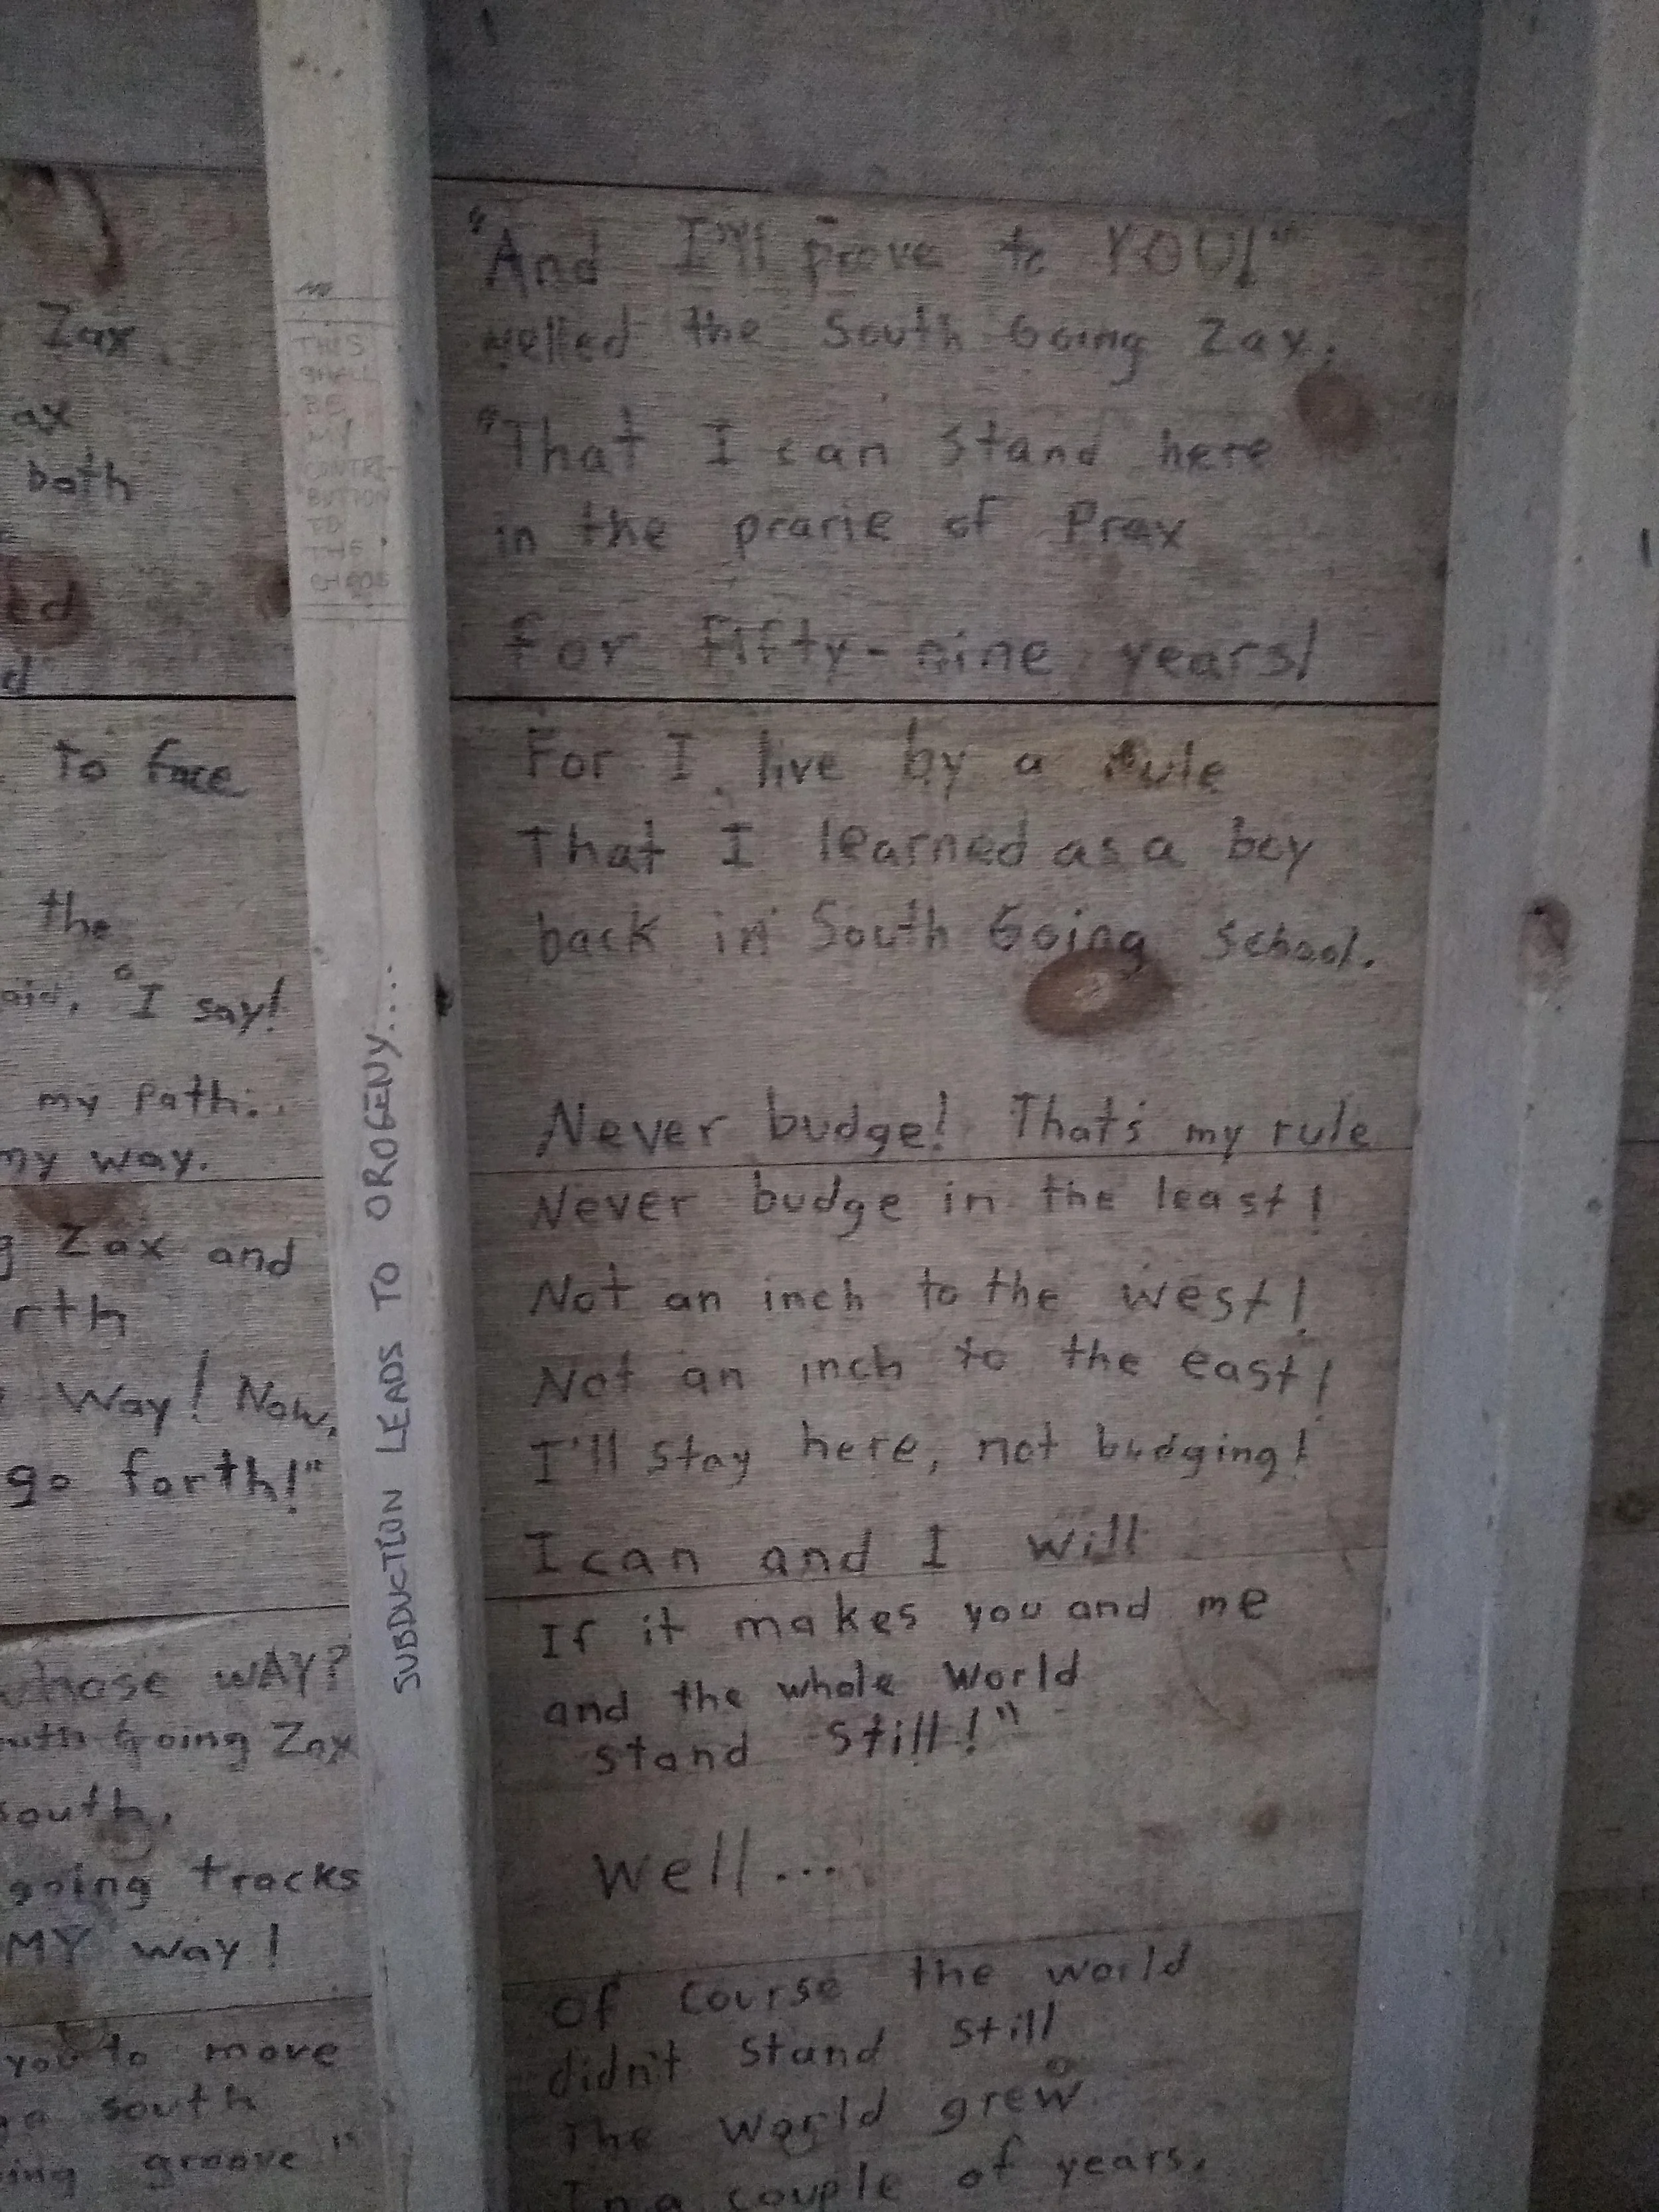 Zax
ax
both
ed
d
to face
the
aid, "I say!
my path.
my way.
g Zax and
rth
Way! Now,
go forth!"
whose WAY?
uth Going Zax
south,
going tracks
MY way!
you to move
go south
ing groove"
THIS
SHALL
BE
MY
CONTRI-
BUTION
TO
THE
CHAOS
SUBDUCTION LEADS TO OROGENY....
"And I'll prove to YOU!"
yelled the South Going Zax,
"That I can stand here
in the prarie of Prax
for fifty-nine years!
For I live by a rule
That I learned as a boy
back in South Going School.
Never budge! That's my rule
Never budge in the least!
Not an inch to the west!
Not an inch to the east!
I'll stay here, not budging!
I can and I will
If it makes you and me
and the whole world
stand still!"
Well...
Of course the world
didn't stand still
The world grew
In a couple of years,